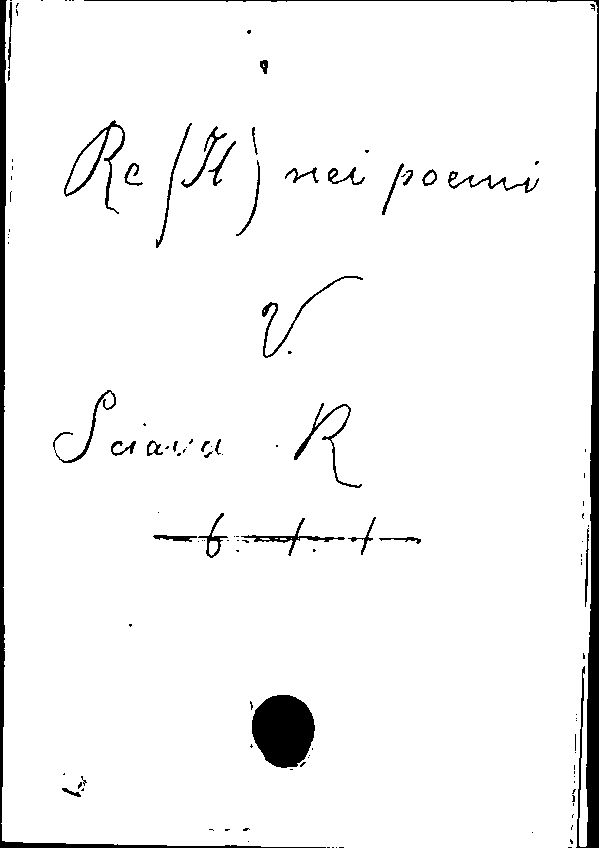 Re (Il) nei poemi
V.
Sciava R
6. 1. 1